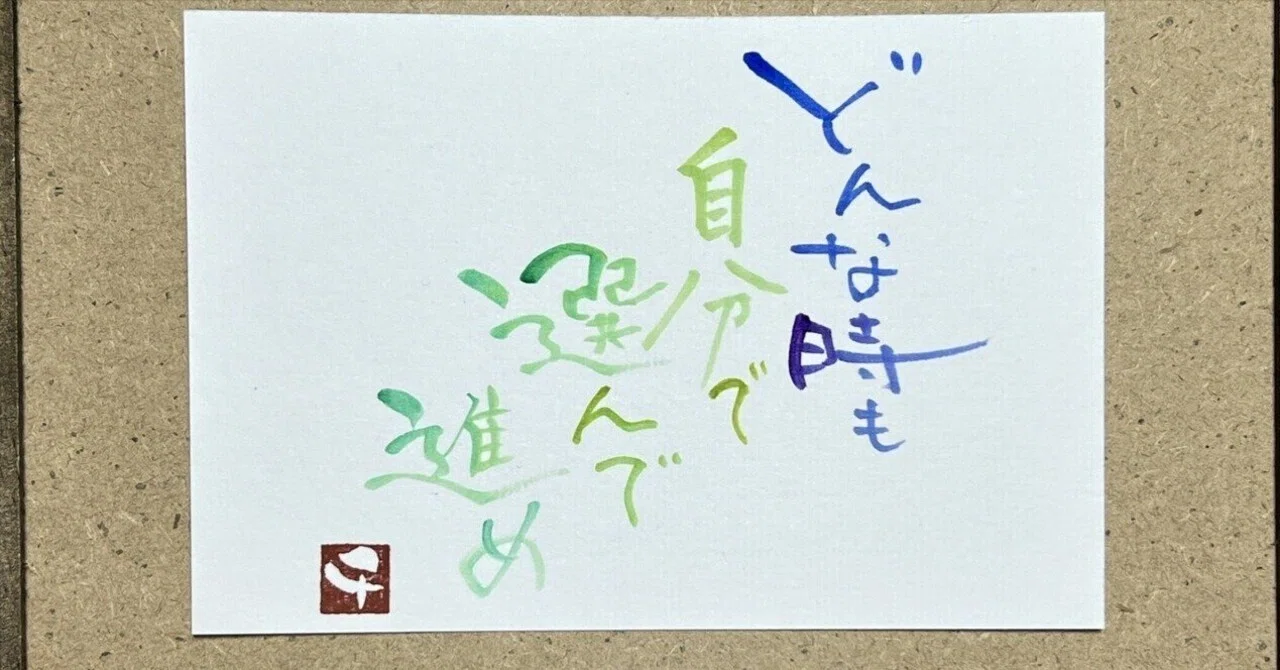 どんな時も
自分で
選んで
進め